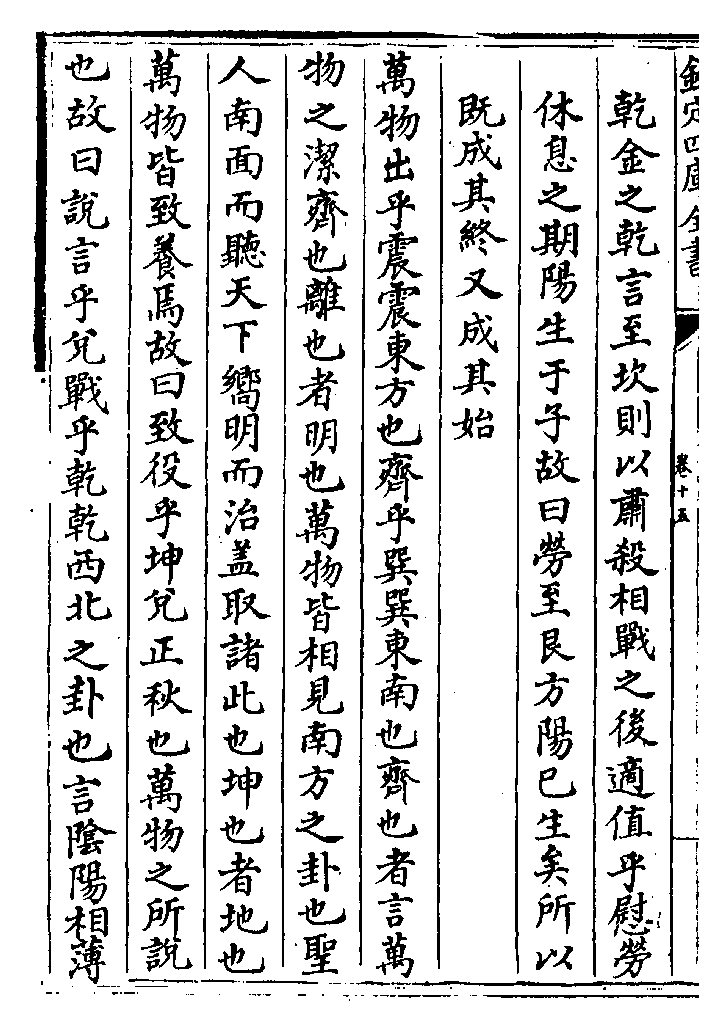 欽定四庫全書
卷十五
乾金之乾言至坎則以肅殺相戰之後適值乎慰勞
休息之期陽生于子故曰勞至艮方陽已生矣所以
既成其終又成其始
萬物出乎震震東方也齊乎巽巽東南也齊也者言萬
物之潔齊也離也者明也萬物皆相見南方之卦也聖
人南面而聽天下嚮明而治盖取諸此也坤也者地也
萬物皆致養焉故曰致役乎坤兌正秋也萬物之所說
也故曰說言乎兌戰乎乾乾西北之卦也言陰陽相薄